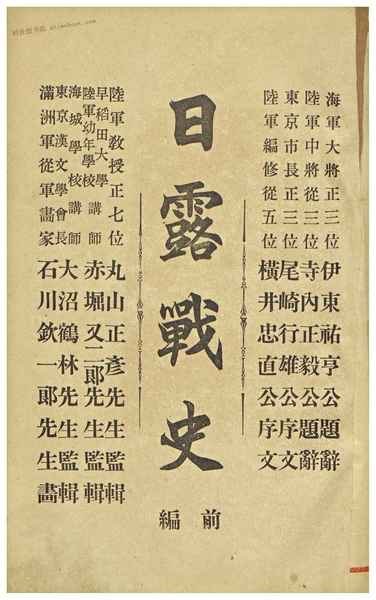 海軍大將正三位伊東祐亨公題辭
陸軍中將從三位寺內正毅公題辭
東京市長正三位尾崎行雄公序文
陸軍編修從五位橫井忠直公序文
日露戰史
前編
陸軍教授正七位丸山正彥先生監輯
早稻田大學
陸軍幼年學校講師赤堀又二郎先生監輯
海城學校講師
東京漢文學會長大沼鶴林先生監輯
滿洲軍從軍畫家石川欽一郎先生畫